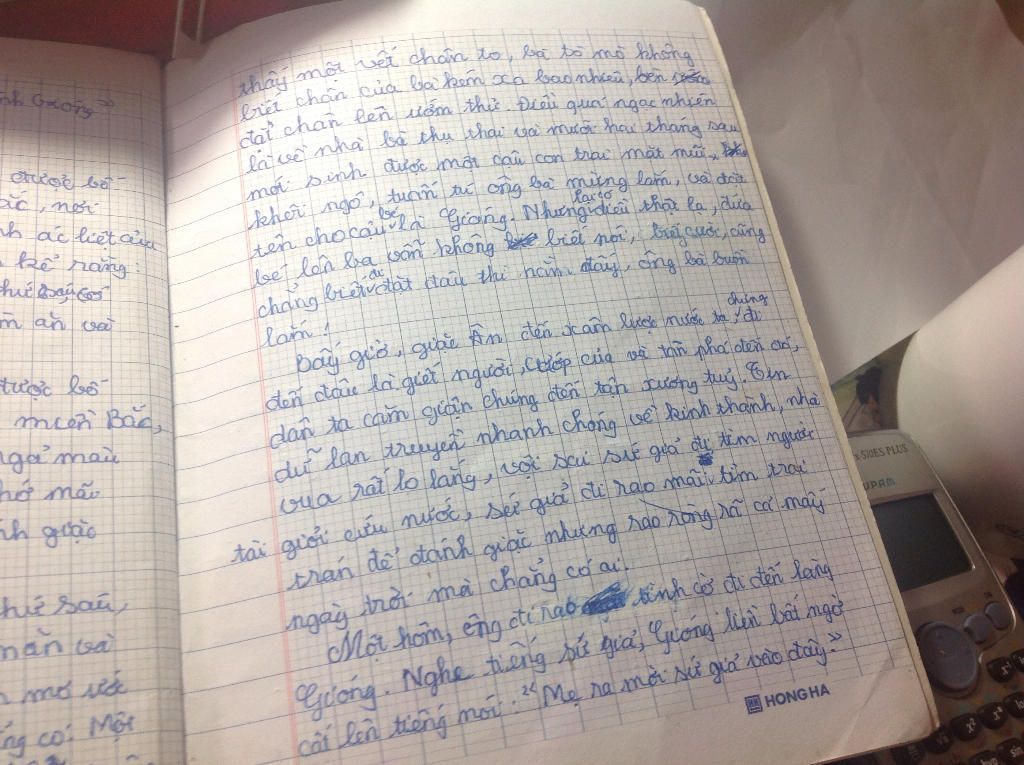 nh Gióng"
được bố
ắc, nơi
nh ác liệt của
kể rằng:
thứ sáu có
m ăn và
được bố
miền Bắc,
ngả màu
hớ mãi
nh giặc
hứ sáu,
ăn và
n mơ ước
ng có. Một
thấy một vết chân to, bà tò mò không
biết chân của bà kém xa bao nhiêu, bèn
đặt chân lên ướm thử. Điều quá ngạc nhiên
là về nhà bà thụ thai và mười hai tháng sau
mới sinh được một cậu con trai mặt mũi
khôi ngô, tuấn tú ông bà mừng lắm, và đặt
tên cho cậu bé là Gióng. Nhưng lại có điều thật lạ, đứa
bé lên ba vẫn không biết nói, biết cười, cũng
chẳng biết đi đặt đâu thì nằm đấy, ông bà buồn
lắm!
Bấy giờ, giặc Ân đến xâm lược nước ta, chúng đi
đến đâu là giết người, cướp của và tàn phá đến đó,
dân ta căm giận chúng đến tận xương tuỷ. Tin
dữ lan truyền nhanh chóng về kinh thành, nhà
vua rất lo lắng, vội sai sứ giả đi tìm người
tài giỏi cứu nước, sứ giả đi rao mãi tìm trai
tráng để đánh giặc nhưng rao ròng rã cả mấy
ngày trời mà chẳng có ai.
Một hôm, ông đi rao tình cờ đi đến làng
Gióng. Nghe tiếng sứ giả, Gióng liền bất ngờ
cất lên tiếng nói: "Mẹ ra mời sứ giả vào đây."
HONG HA
SIES PLUS
UPAM